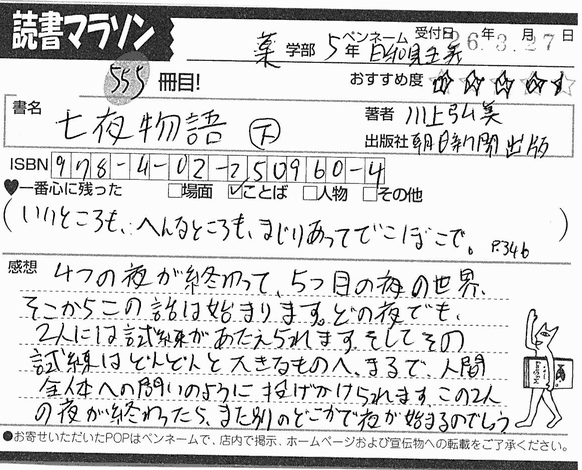 読書マラソン
薬 学部 5年 ペンネーム 日和見主義 受付日 26年 3.27
555 冊目! おすすめ度 ☆☆☆☆☆
書名 七夜物語 下 著者 川上弘美
出版社 朝日新聞出版
ISBN 978-4-02-250960-4
♥一番心に残った □場面 ☑ことば □人物 □その他
(いいところも、へんなところも、まじりあってでこぼこで。 P.346)
感想 4つの夜が終わって、5つ目の夜の世界、
そこからこの話は始まります。どの夜でも、
2人には試練があたえられます。そしてその
試練はどんどんと大きなものへ、まるで、人間
全体への問いのように投げかけられます。この2人
の夜が終わったら、また別のどこかで夜が始まるのでしょう
●お寄せいただいたPOPはペンネームで、店内で掲示、ホームページおよび宣伝物への転載をご了承ください。